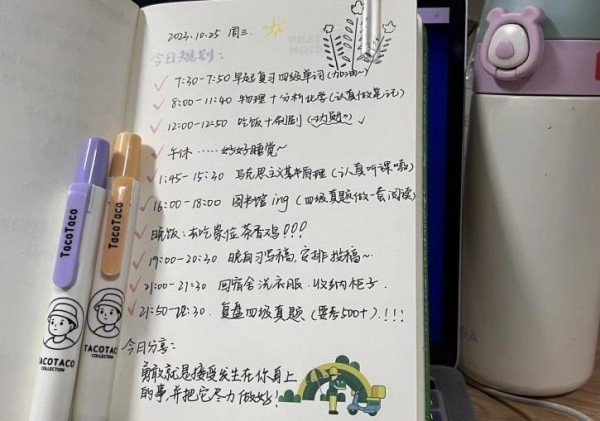 2023.10.25 周三.
今日规划:
7:30-7:50 早起复习四级单词(加油~)
8:00-11:40 物理+分析化学(认真做笔记)
12:00-12:50 吃饭+刷剧
午休 ……好好睡觉~
1:45-15:30 马克思主义基本原理(认真听课嗷)
16:00-18:00 图书馆ing (四级真题做一套阅读)
晚饭:去吃 茶香鸡!!!
19:00-20:30 晚自习写稿,安排投稿~
21:00-21:30 回宿舍洗衣服.收纳柜子.
21:50-22:30. 复盘四级真题(要考500+).!!!
今日分享:
勇敢就是接受发生在你身上
的事,并把它尽力做好!
TacoTaco
TACOTACO
COLLECTION
TacoTaco
TACOTACO
COLLECTION